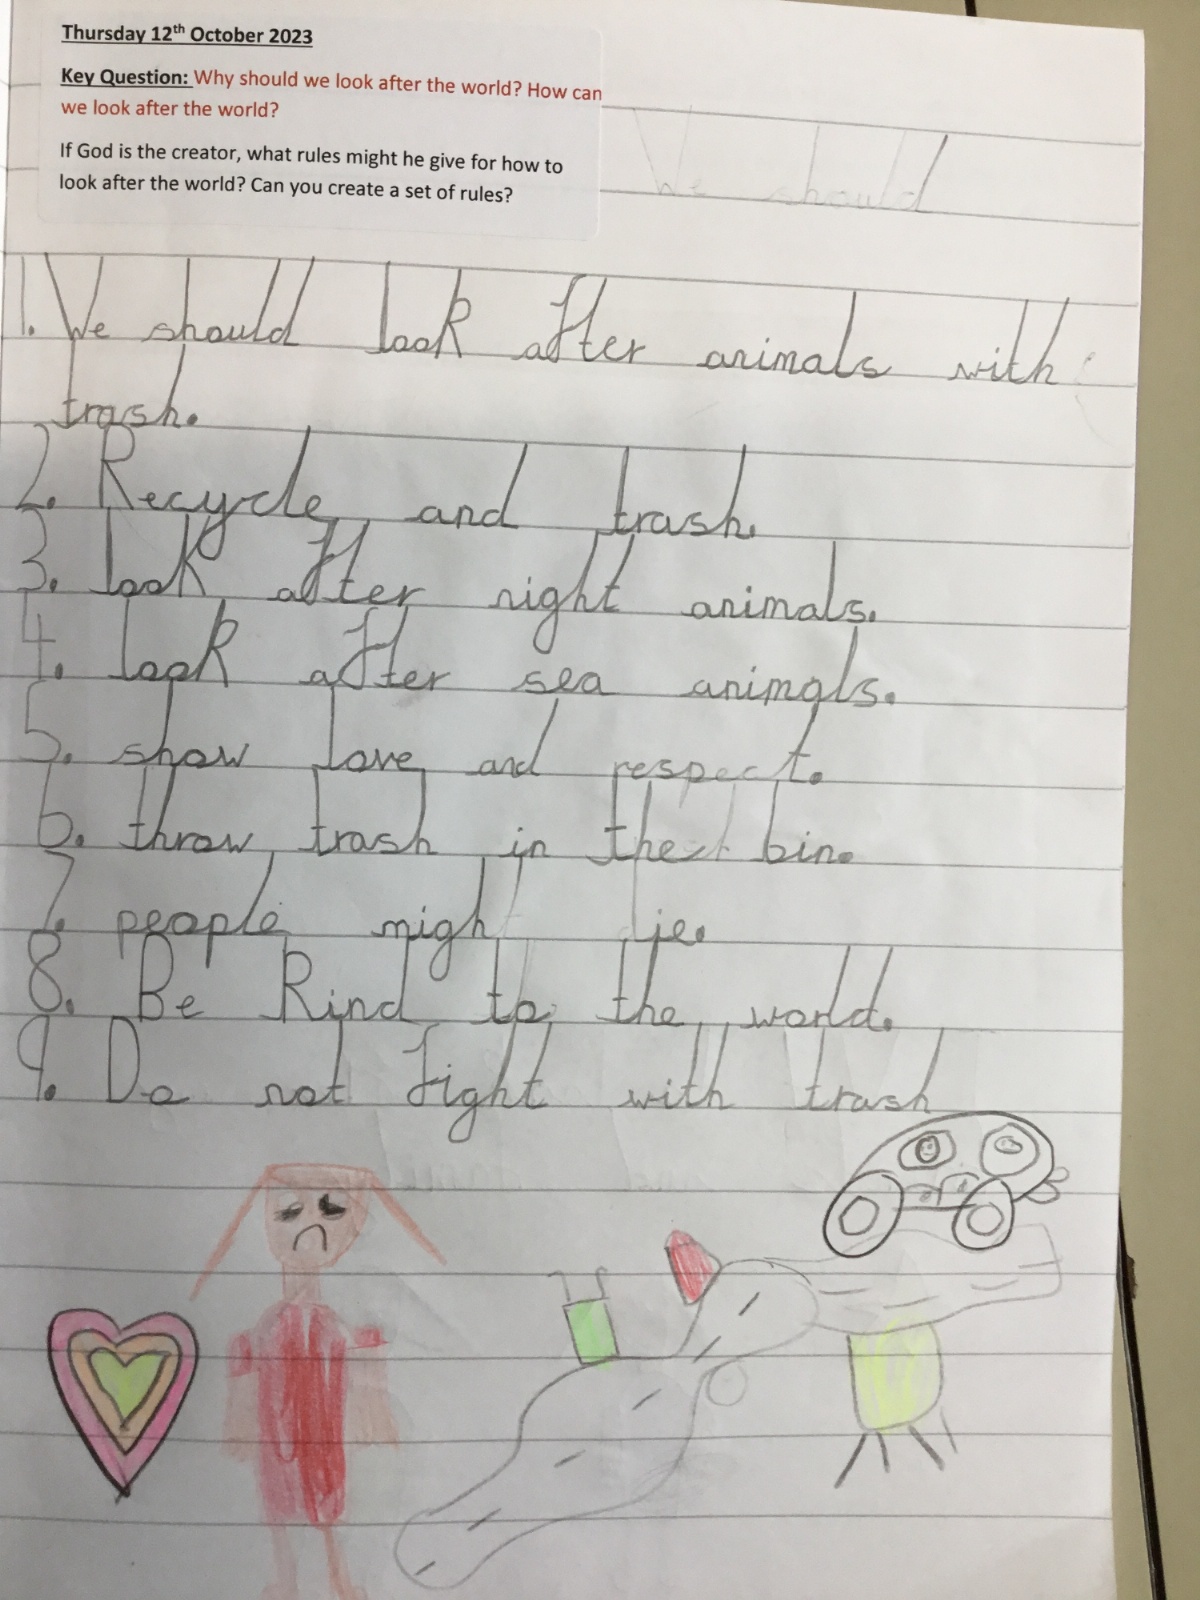 Thursday 12th October 2023
Key Question: Why should we look after the world? How can
we look after the world?
If God is the creator, what rules might he give for how to
look after the world? Can you create a set of rules?
We should
1. We should look after animals with
trash.
2. Recycle and trash.
3. look after night animals.
4. look after sea animals.
5. show love and respect.
6. throw trash in the bin.
7. people might die.
8. Be kind to the world.
9. Do not fight with trash